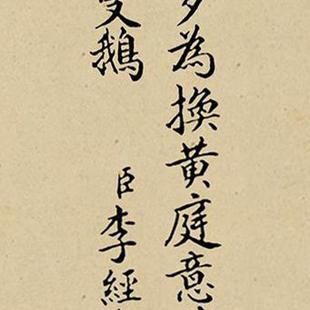 為換黃庭意
鵝
臣李經